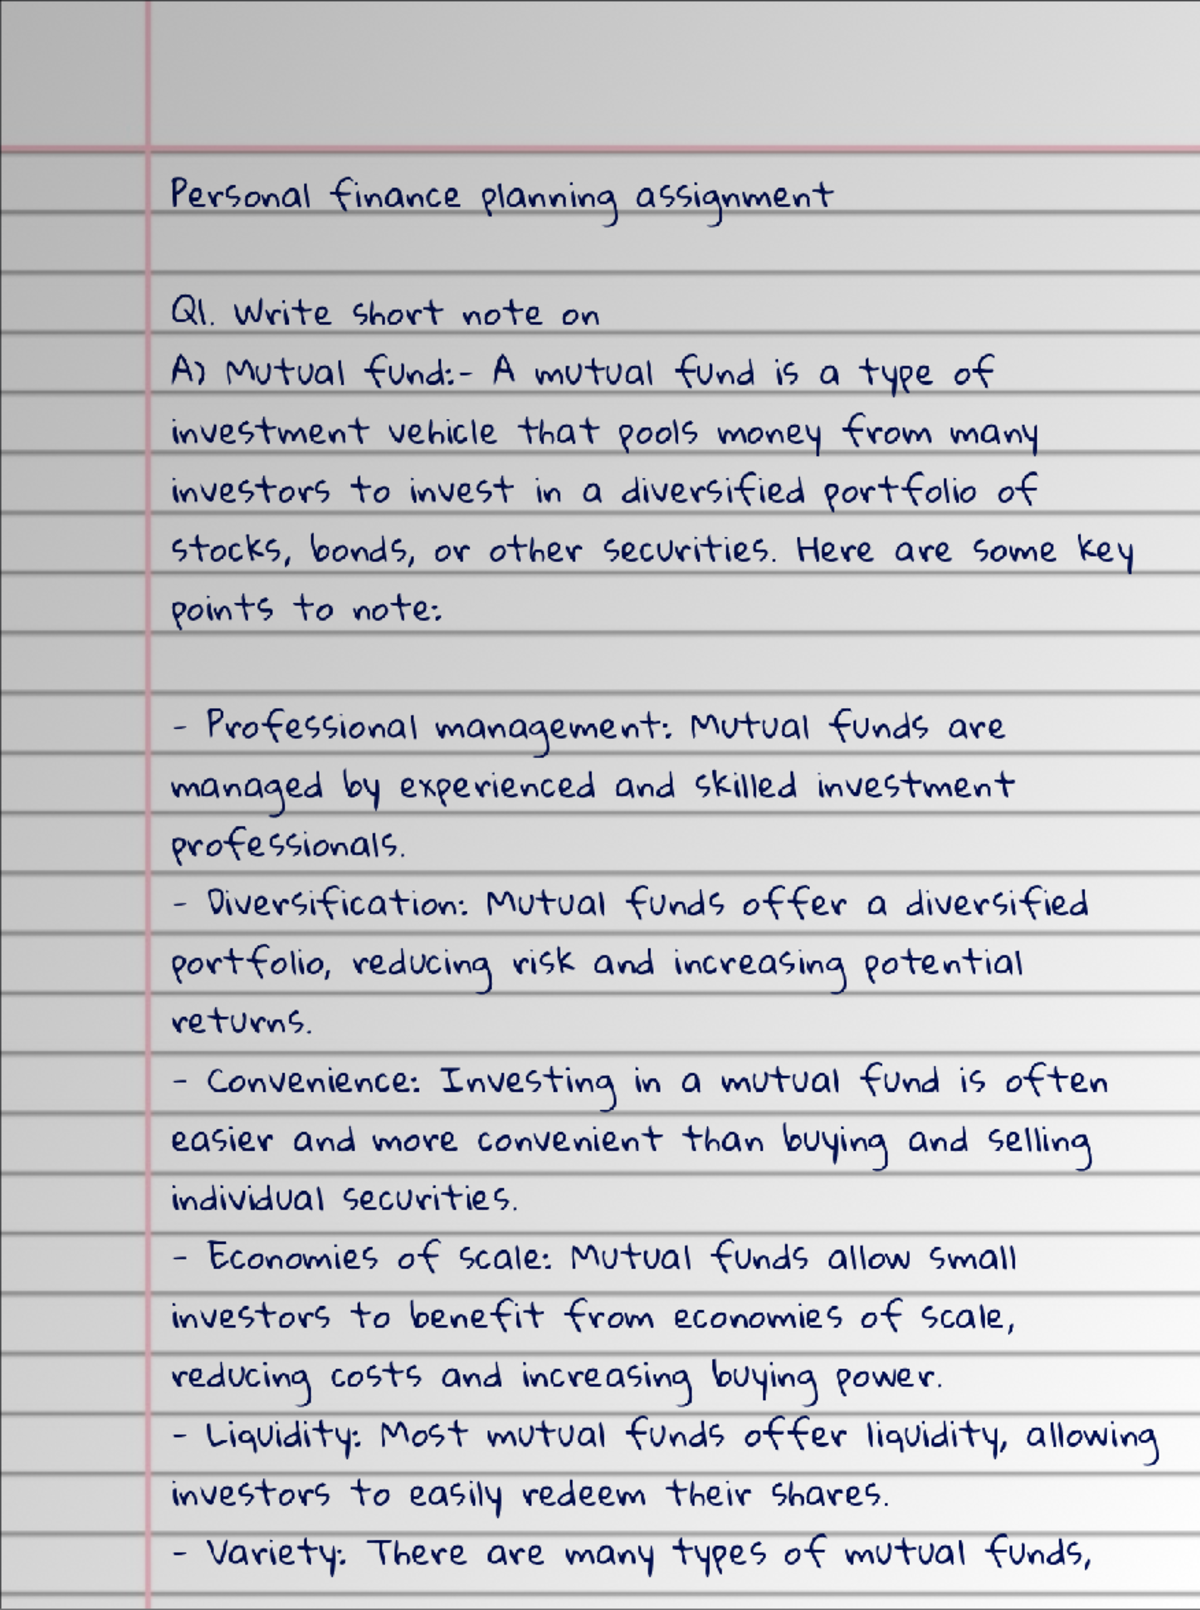 Personal finance planning assignment
Q1. Write short note on
A) Mutual fund:- A mutual fund is a type of
investment vehicle that pools money from many
investors to invest in a diversified portfolio of
stocks, bonds, or other securities. Here are some key
points to note:
- Professional management: Mutual funds are
managed by experienced and skilled investment
professionals.
- Diversification: Mutual funds offer a diversified
portfolio, reducing risk and increasing potential
returns.
- Convenience: Investing in a mutual fund is often
easier and more convenient than buying and selling
individual securities.
- Economies of scale: Mutual funds allow small
investors to benefit from economies of scale,
reducing costs and increasing buying power.
- Liquidity: Most mutual funds offer liquidity, allowing
investors to easily redeem their shares.
- Variety: There are many types of mutual funds,